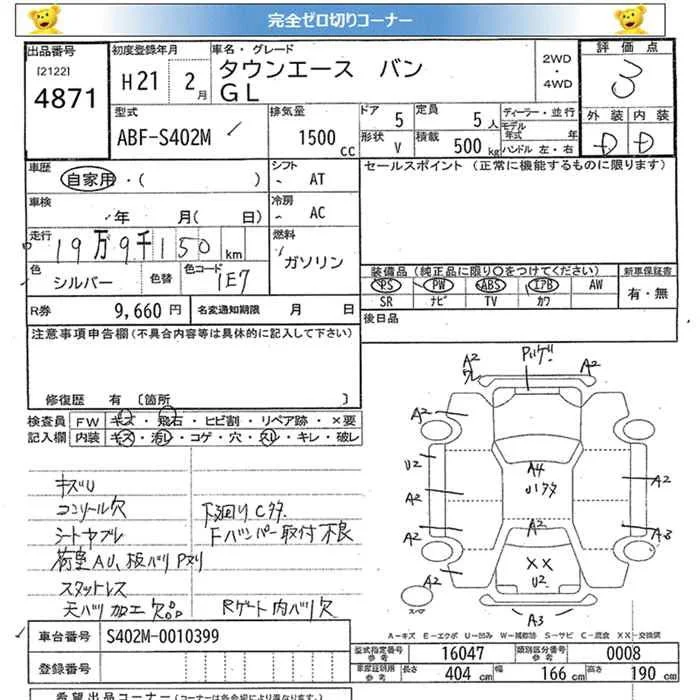 完全ゼロ切りコーナー
出品番号 初度登録年月 車名・グレード 2WD・4WD 評価点
[2122]
4871
H21 2月 タウンエース バン
GL
3
型式 排気量 ドア 5 定員 5人 ディーラー・並行
モデル年式 年
外装 内装
ABF-S402M 1500CC 形状 V 積載 500kg ハンドル 左・右 D D
車歴 シフト セールスポイント (正常に機能するものに限ります)
自家用・( ) AT
車検 冷房
年 月( 日) AC
走行 燃料
19万9千150km ガソリン
色 色替 カラーコード
シルバー 1E7
装備品(純正品に限り○をつけてください) 新車保証書
PS PW ABS エアB AW 有・無
SR ナビ TV カワ
R券 9,660円 名変通知期限 月 日 後日品
注意事項申告欄(不具合内容等は具体的に記入して下さい)
修復歴 有 [箇所 ]
検査員 FW キズ・飛石・ヒビ割・リペア跡・×要
記入欄 内装 キズ・汚レ・コゲ・穴・スレ・キレ・破レ
キズU
コンソール欠 下廻りCタ
シートヤブレ Fバンパー取付不良
荷室AU、板バリPヌリ
スタットレス
天バリ加工欠品 Rゲート内バリ欠
A2 A2
A2 A2
U2 A4
A2 A2
A2 A2 A3
A2 ×× U2
スペア A3
A-キズ E-エクボ U-凹み W-補修跡 S-サビ C-腐食 XX-交換済
車台番号 S402M-0010399
登録番号
型式指定番号 参考 16047 類別区分番号 参考 0008
車庫証明用 参考 長さ 404cm 幅 166cm 高さ 190cm
希望出品コーナー